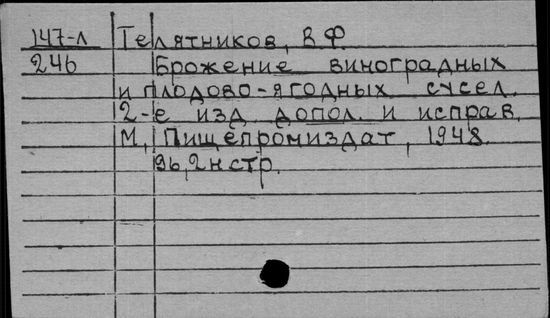 147-л Телятников, В.Ф.
246 Брожение виноградных
и плодово-ягодных сусел.
2-е изд. допол. и исправ.
М, Пищепромиздат, 1948.
96, 2н стр.